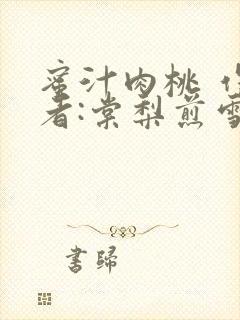 蜜汁肉桃 作
者:棠梨煎雪
書歸